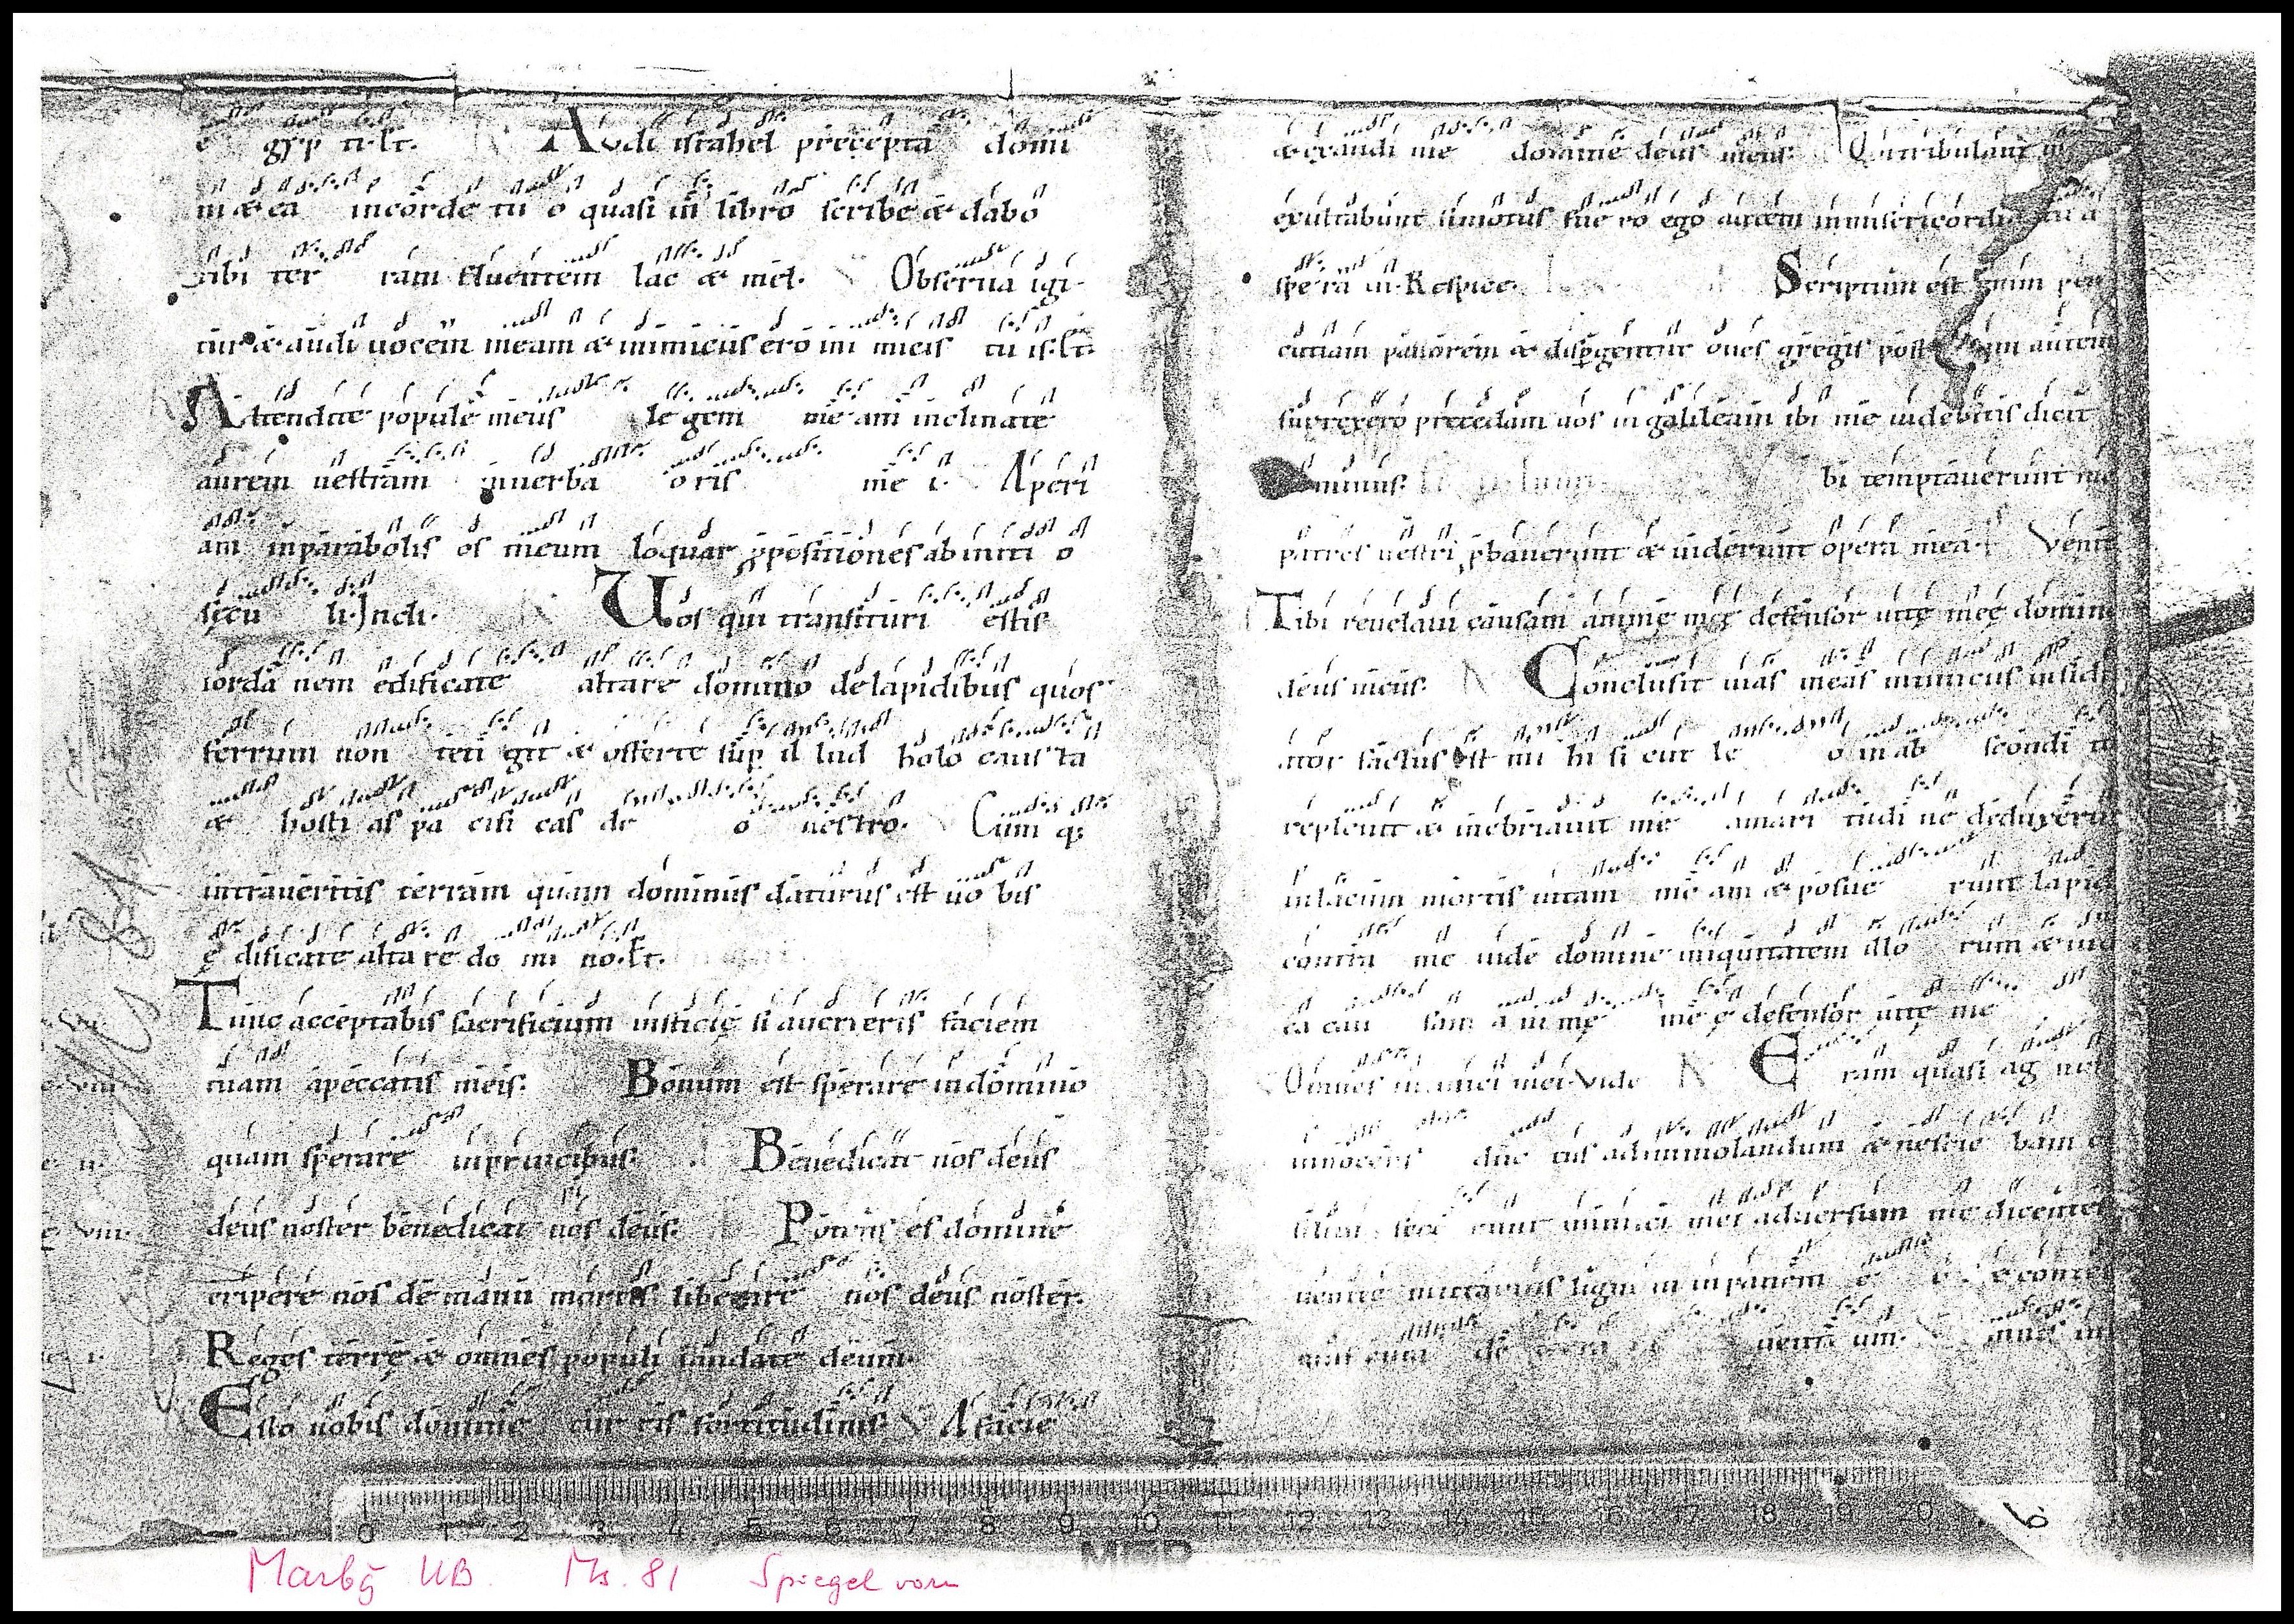 e gyp ti·Et. Audi israhel precepta domi
ni & ea incorde tu o quasi in libro scribe & dabo
tibi ter ram fluentem lac & mel. Obserua igi
tur & audi uocem meam & inimicus ero ini micis tu is·Et.
Attendite popule meus le gem me am inclinate
aurem uestram inuerba oris me i· Aperi
am inparabolis os meum loquar ꝓpositiones ab initi o
sęcu li·Incli.
Uos qui transituri estis
iorda nem edificate altare domino delapidibus quos
ferrum non teti git & offerte sup il lud holo caus ta
& hosti as pa cifi cas de o uestro. Cum q;
intraueritis terram quam dominus daturus est uo bis
ę dificate alta re do mi no·Et.
Tunc acceptabis sacrificium iusticię si auerteris faciem
tuam apeccatis meis. Bonum est sperare indomino
quam sperare inprincipibus. Benedicat nos deus
deus noster benedicat nos deus. Potens es domine
eripere nos de manu mortis libera re nos deus noster.
Reges terrę & omnes populi laudate deum.
Esto nobis domine tur ris fortitudinis V Afacie
& exaudi me domine deus meus. Qui tribulant
exultabunt simotus fue ro ego autem inmisericordia tu a
spera ui·Respice. Scriptum est enim per
cutiam pastorem & dispgentur oues gregis post autem
surrexero precedam uos in galileam ibi me uidebitis dicit
bi temptauerunt me
patres uestri pbauerunt & uiderunt opera mea Venite
Tibi reuelaui causam animę meę defensor uitę meę domin
deus meus. Conclusit uias meas inimicus insidi
ator factus est mi hi si cut le o in ab scondi to
repleuit & inebriauit me amari tudi ne deduxerunt
inlacum mortis uitam me am & posue runt lapid
contra me uide domine iniquitatem illo rum & iud
ca cau sam a ni mę me ę defensor uitę me
Omnes in imici mei·Vide E ram quasi ag nus
innocens duc tus adimmolandum & nescie bam
inimici mei aduersum me dicentes
uenite mittamus lignum inpanem e
mus eum de uenti um. mnes in
0 1 2 3 4 5 6 7 8 9 10 11 12 13 14 15 16 17 18 19 20
MGP
6
Marbg UB. Ms. 81 Spiegel vorn